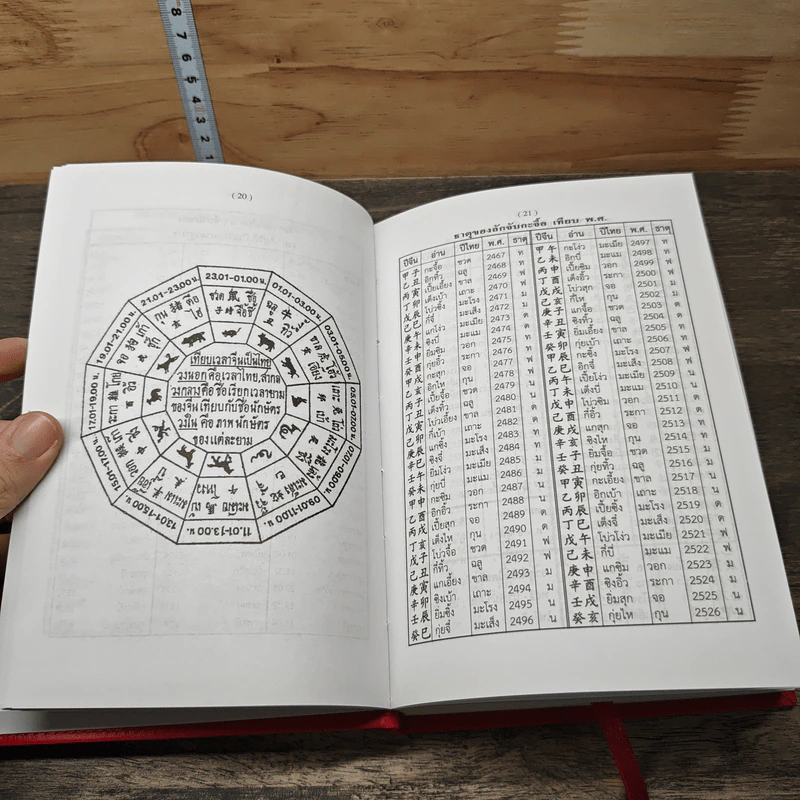 ( 20 )
23.01-01.00 น.
01.01-03.00 น.
03.01-05.00 น.
05.01-07.00 น.
07.01-09.00 น.
09.01-11.00 น.
11.01-13.00 น.
13.01-15.00 น.
15.01-17.00 น.
17.01-19.00 น.
19.01-21.00 น.
21.01-23.00 น.
เทียบเวลาจีนเป็นไทย
วงนอกคือเวลาไทย,สากล
วงกลางคือชื่อเรียกเวลายาม
ของจีนเทียบกับชื่อนักษัตร
วงในคือภาพนักษัตร
ของแต่ละยาม
( 21 )
ธาตุของลักจับกะจื้อ เทียบ พ.ศ.
ปีจีน อ่าน ปีไทย พ.ศ. ธาตุ ปีจีน อ่าน ปีไทย พ.ศ. ธาตุ
甲子 กะจื้อ ชวด 2467 ท 甲午 กะโง่ว มะเมีย 2497 ท
乙丑 อิกทิ้ว ฉลู 2468 ท 乙未 อิกบี่ มะแม 2498 ท
丙寅 เปี้ยเอี้ยง ขาล 2469 ฟ 丙申 เปี้ยซิม วอก 2499 ฟ
丁卯 เต็งเบ้า เถาะ 2470 ฟ 丁酉 เต็งอิ้ว ระกา 2500 ฟ
戊辰 มะโรง 2471 ม 戊戌 โบ่วสุก จอ 2501 ม
己巳 กี่จี๋ มะเส็ง 2472 ม 己亥 กี่ไห กุน 2502 ม
庚午 แกโง่ว มะเมีย 2473 ด 庚子 แกจื้อ ชวด 2503 ด
辛未 ซิงบี่ มะแม 2474 ด 辛丑 ซิงทิ้ว ฉลู 2504 ด
壬申 ยิ่มซิม วอก 2475 ท 壬寅 ยิ่มเอี้ยง ขาล 2505 ท
癸酉 กุ่ยอิ้ว ระกา 2476 ท 癸卯 กุ่ยเบ้า เถาะ 2506 ท
甲戌 กะสุก จอ 2477 ฟ 甲辰 มะโรง 2507 ฟ
乙亥 อิกไห กุน 2478 ฟ 乙巳 มะเส็ง 2508 ฟ
丙子 ชวด 2479 น 丙午 เปี้ยโง่ว มะเมีย 2509 น
丁丑 ฉลู 2480 น 丁未 เต็งบี่ มะแม 2510 น
戊寅 ขาล 2481 ด 戊申 โบ่วซิม วอก 2511 ด
己卯 กี่เบ้า เถาะ 2482 ด 己酉 กี่อิ้ว ระกา 2512 ด
庚辰 มะโรง 2483 ท 庚戌 แกสุก จอ 2513 ท
辛巳 ซิงจี๋ มะเส็ง 2484 ท 辛亥 ซิงไห กุน 2514 ท
壬午 ยิ่มโง่ว มะเมีย 2485 ม 壬子 ยิ่มจื้อ ชวด 2515 ม
癸未 กุ่ยบี่ มะแม 2486 ม 癸丑 กุ่ยทิ้ว ฉลู 2516 ม
甲申 กะซิม วอก 2487 น 甲寅 กะเอี้ยง ขาล 2517 น
乙酉 อิกอิ้ว ระกา 2488 น 乙卯 อิกเบ้า เถาะ 2518 น
丙戌 เปี้ยสุก จอ 2489 ด 丙辰 เปี้ยซิ้ง มะโรง 2519 ด
丁亥 เต็งไห กุน 2490 ด 丁巳 เต็งจี๋ มะเส็ง 2520 ด
戊子 โบ่วจื้อ ชวด 2491 ฟ 戊午 โบ่วโง่ว มะเมีย 2521 ฟ
己丑 กี่ทิ้ว ฉลู 2492 ฟ 己未 กี่บี่ มะแม 2522 ฟ
庚寅 แกเอี้ยง ขาล 2493 ม 庚申 แกซิม วอก 2523 ม
辛卯 ซิงเบ้า เถาะ 2494 ม 辛酉 ซิงอิ้ว ระกา 2524 ม
壬辰 ยิ่มซิ้ง มะโรง 2495 น 壬戌 ยิ่มสุก จอ 2525 น
癸巳 กุ่ยจี๋ มะเส็ง 2496 น 癸亥 กุ่ยไห กุน 2526 น
8
7
6
5
4
3
2
1